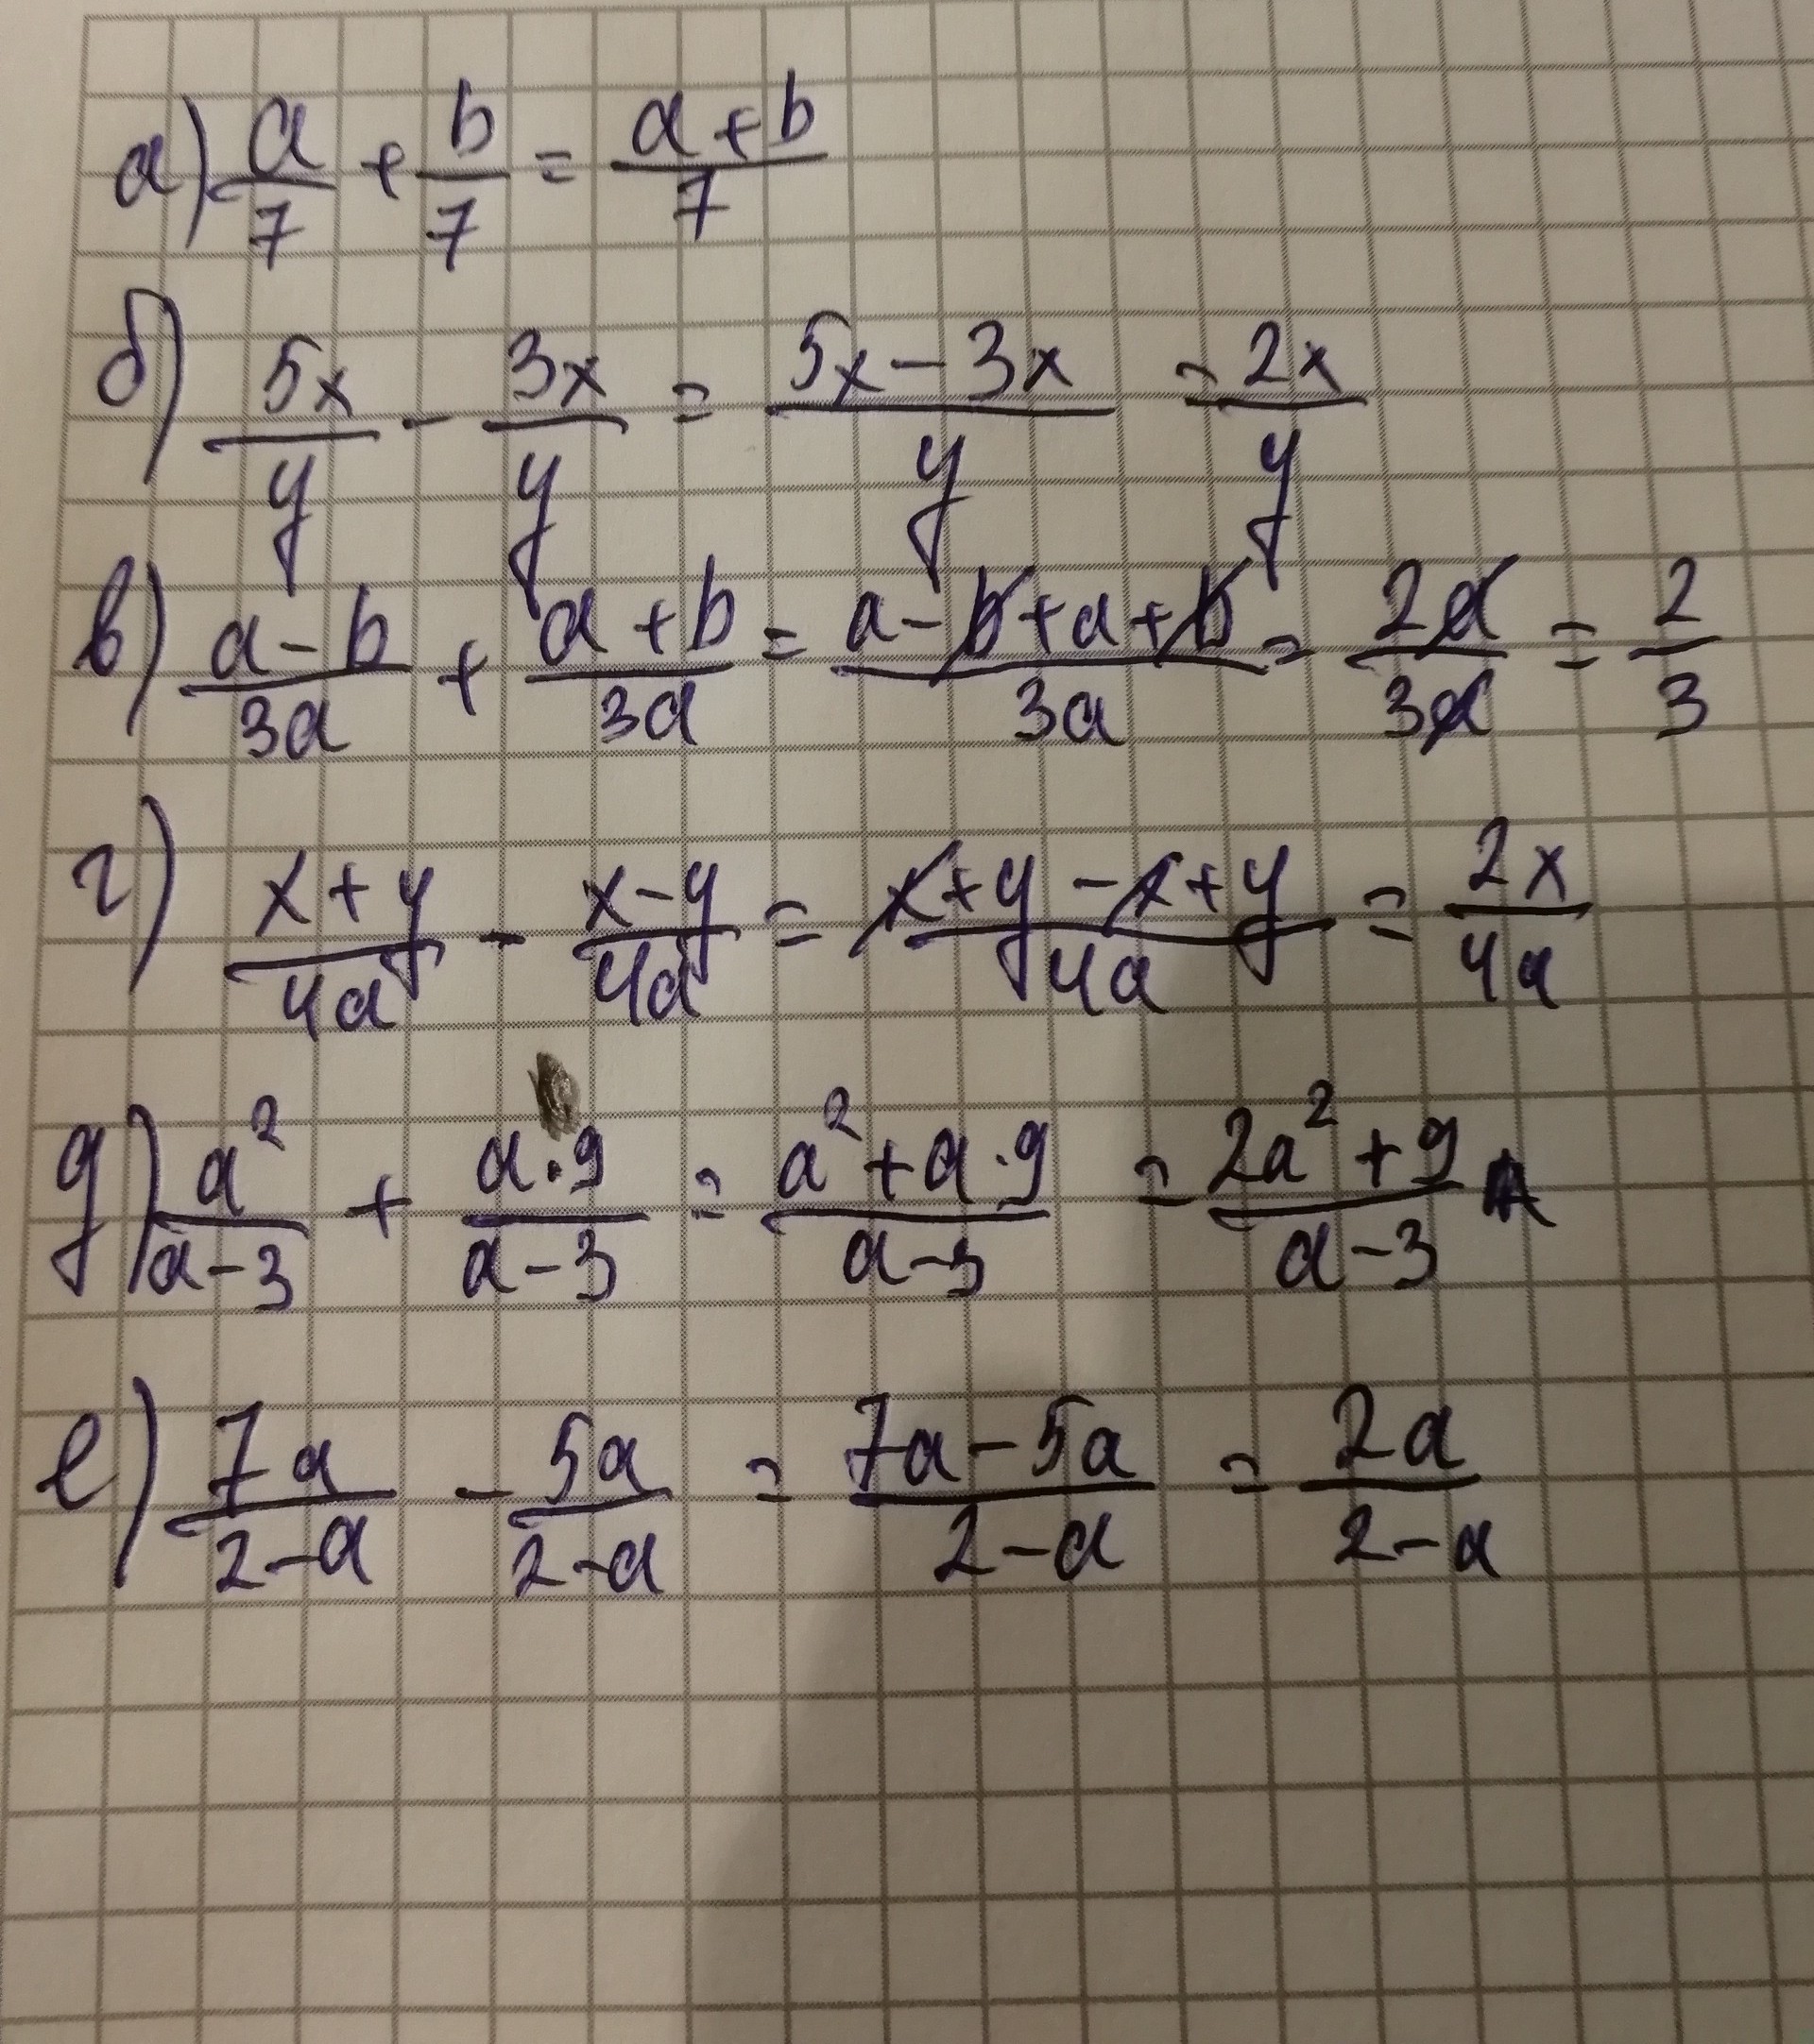 а) a/7 + b/7 = a+b/7
б) 5x/y - 3x/y = 5x-3x/y = 2x/y
в) a-b/3a + a+b/3a = a-b+a+b/3a = 2a/3a = 2/3
г) x+y/4a - x-y/4a = x+y-x+y/4a = 2x/4a
д) a²/a-3 + a·9/a-3 = a²+a·9/a-3 = 2a²+9/a-3
е) 7a/2-a - 5a/2-a = 7a-5a/2-a = 2a/2-a